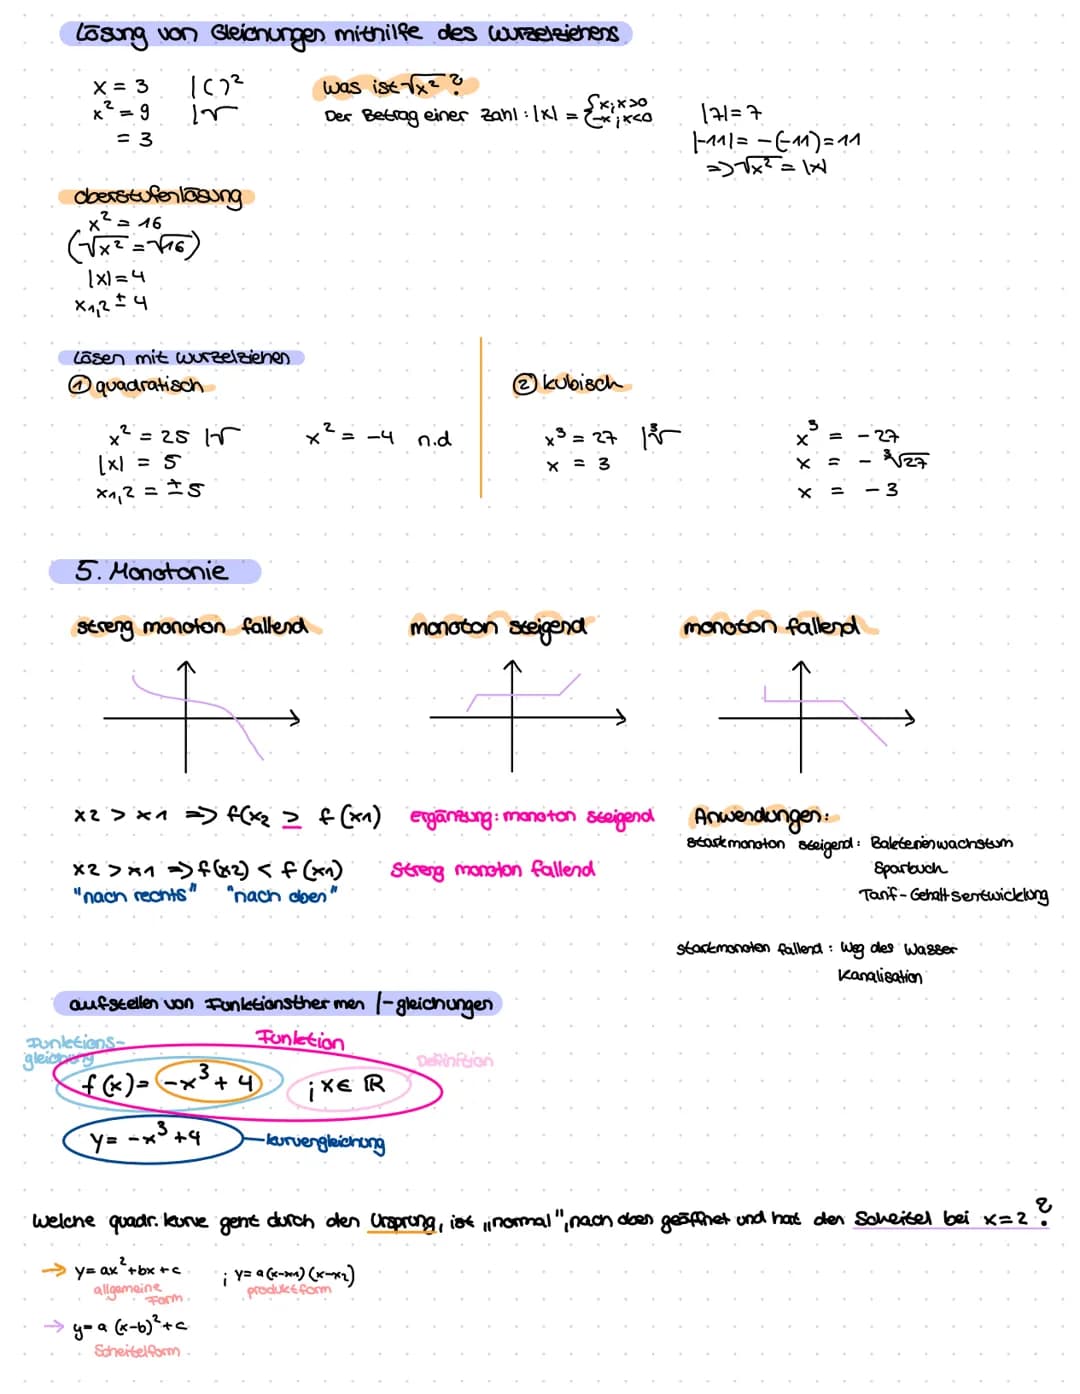 Lösung von Gleichungen mithilfe des Wurzelziehens
x = 3 | ( )²
x² = 9 | √
= 3
Was ist √x² ?
Der Betrag einer Zahl : |x| = { x ; x>0
-x ; x<0
|7| = 7
|-11| = -(-11) = 11
=> √x² = |x|
Oberstufenlösung
x² = 16
(√x² = √16)
|x| = 4
x1,2 ± 4
Lösen mit Wurzelziehen
① quadratisch
x² = 25 | √
|x| = 5
x1,2 = ± 5
x² = -4 n.d
② kubisch
x³ = 27 | ³√
x = 3
x³ = - 27
x = - ³√27
x = - 3
5. Monotonie
streng monoton fallend
monoton steigend
monoton fallend
x2 > x1 => f(x2 ≥ f (x1) ergänzung: monoton steigend
x2 > x1 => f(x2) < f (x1) Streng monoton fallend
"nach rechts" "nach oben"
Anwendungen:
starkmonoton steigend : Bakterienwachstum
Sparbuch
Tarif-Gehaltsentwicklung
starkmonoton fallend : Weg des Wasser
Kanalisation
aufstellen von Funktionsthermen /-gleichungen
Funktions-
gleichung
Funktion
Definition
f(x) = -x³ + 4 ; x ∈ ℝ
y = -x³ + 4 kurvengleichung
Welche quadr. kurve geht durch den Ursprung, ist „normal", nach oben geöffnet und hat den Scheitel bei x=2 ?
→ y= ax² + bx + c ; y= a (x-x1) (x-x2)
allgemeine Form
produktform
→ y= a (x-b)² + c
Scheitelform